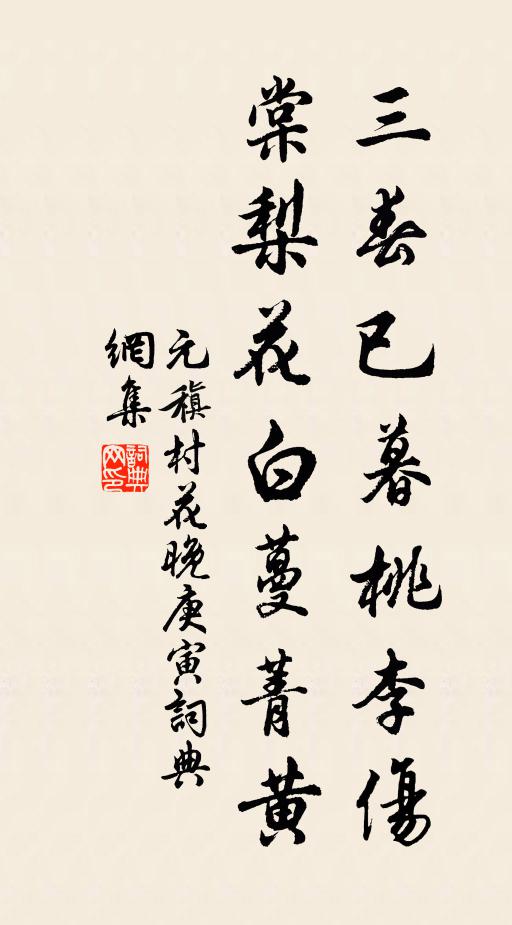 三春已暮桃李傷
棠梨花白蔓菁黃
元稹村花晚庚寅詞典
網集
詞典網印